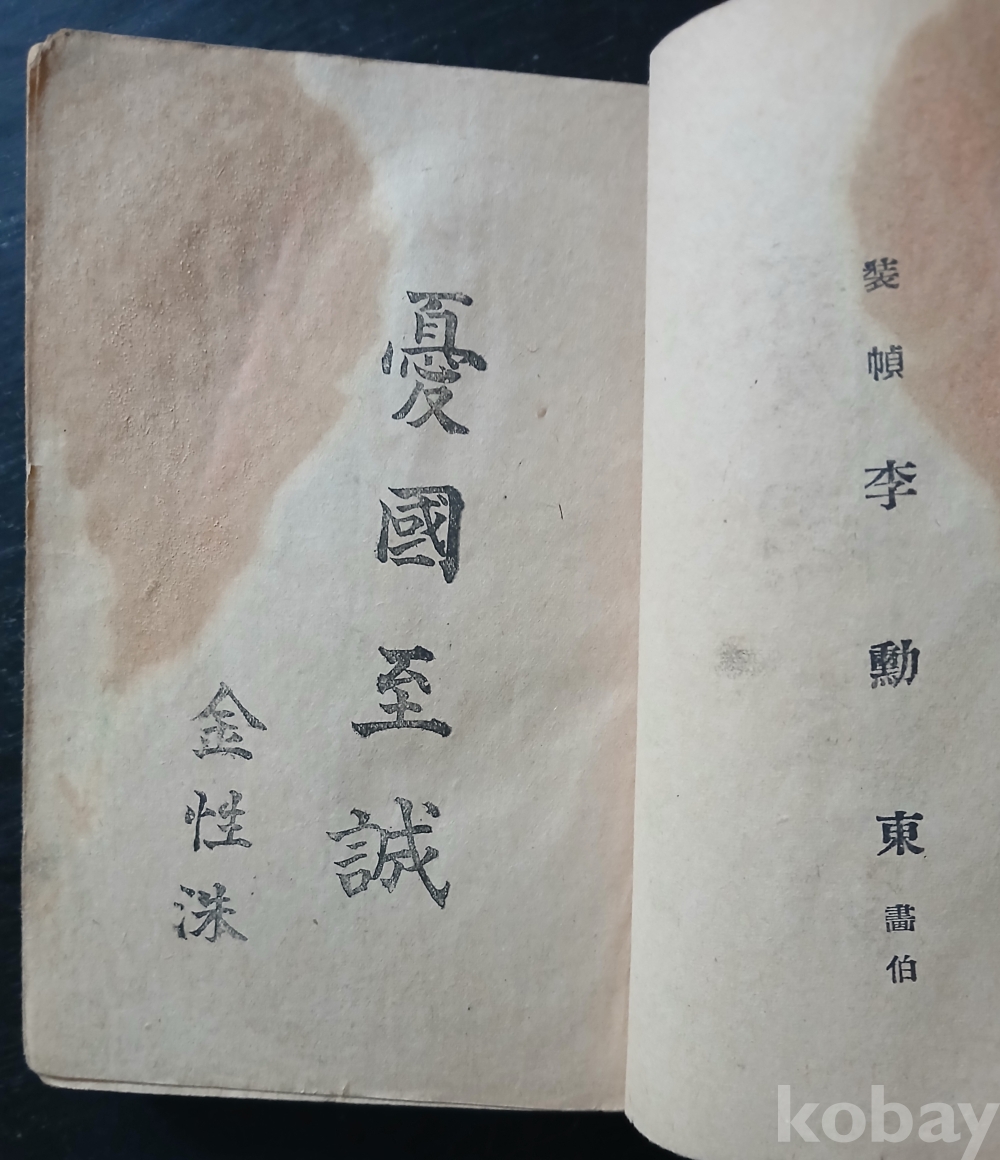 裝幀 李勳東 畵伯
憂國至誠
金性洙
kobay